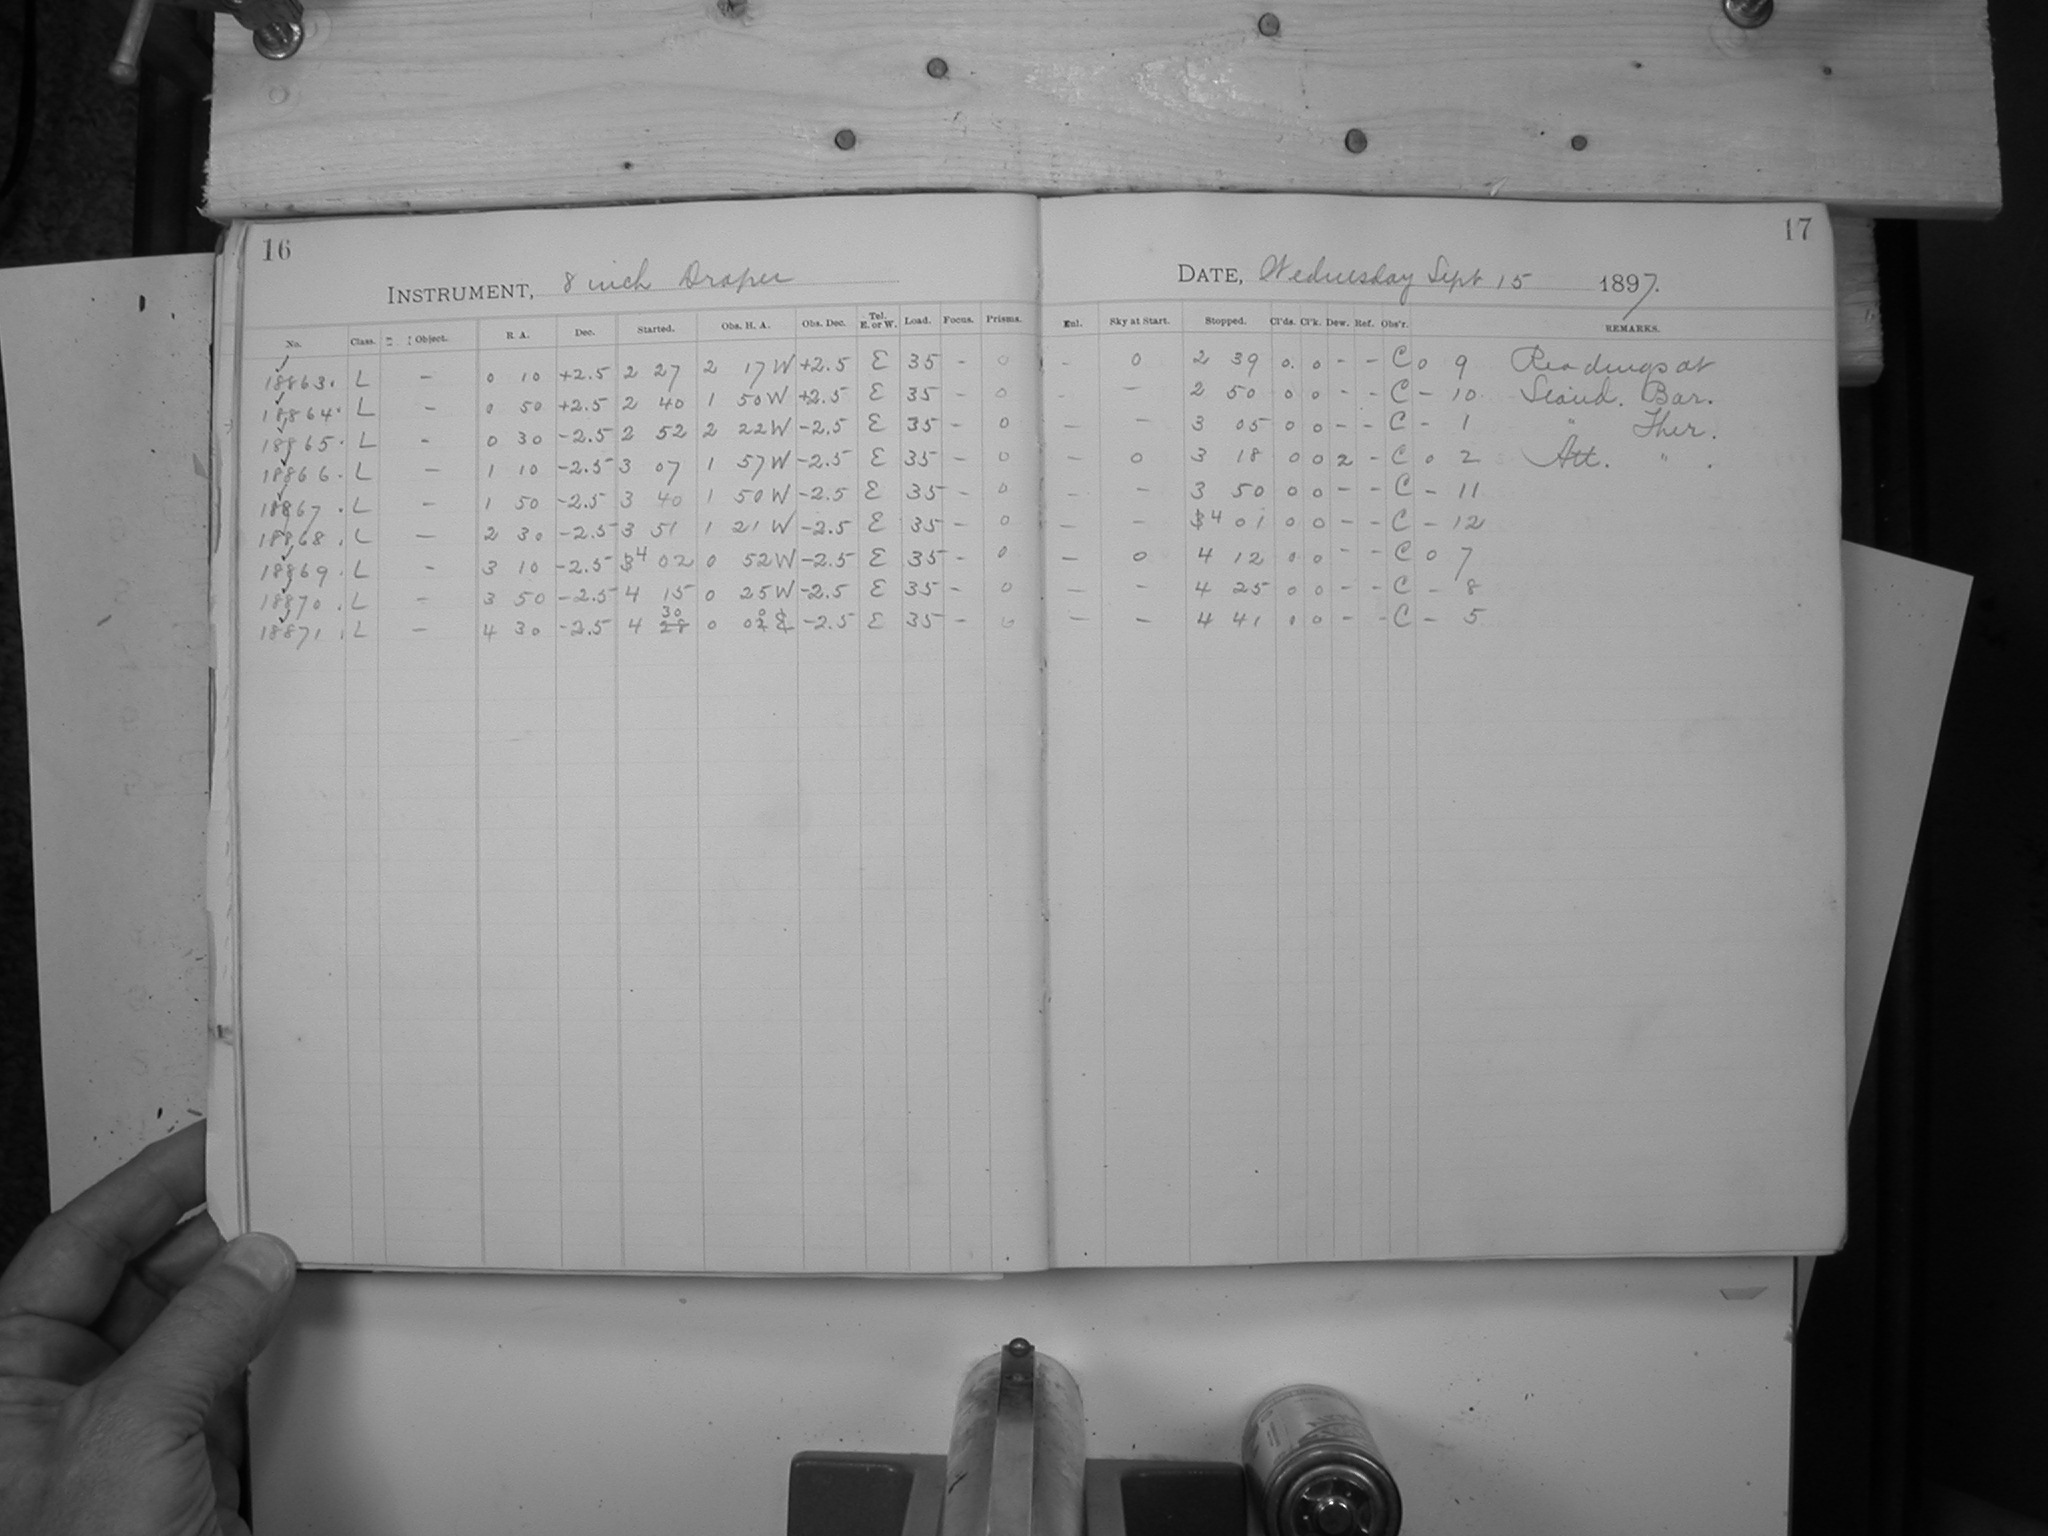 16
INSTRUMENT, 8 inch Draper
No. Class. Object. R. A. Dec. Started. Obs. H. A. Obs. Dec. Tel. E. or W. Load. Focus. Prisms.
18863. L – 0 10 +2.5 2 27 2 17 W +2.5 E 35 – 0
18864. L – 0 50 +2.5 2 40 1 50 W +2.5 E 35 – 0
18865. L – 0 30 –2.5 2 52 2 22 W –2.5 E 35 – 0
18866. L – 1 10 –2.5 3 07 1 57 W –2.5 E 35 – 0
18867. L – 1 50 –2.5 3 40 1 50 W –2.5 E 35 – 0
18868. L – 2 30 –2.5 3 51 1 21 W –2.5 E 35 – 0
18869. L – 3 10 –2.5 4 02 0 52 W –2.5 E 35 – 0
18870. L – 3 50 –2.5 4 15 0 25 W –2.5 E 35 – 0
18871. L – 4 30 –2.5 4 30 0 0 –2.5 E 35 – 0
17
DATE, Wednesday Sept 15 1897.
Enl. Sky at Start. Stopped. Cl'ds. Cl'k. Dew. Ref. Obs'r. REMARKS.
– 0 2 39 0. 0 – – C 0 9 Readings at
– – 2 50 0 0 – – C – 10 Stand. Bar.
– – 3 05 0 0 – – C – 1 " Ther.
– 0 3 18 0 0 2 – C 0 2 Att. " .
– – 3 50 0 0 – – C – 11
– – 4 01 0 0 – – C – 12
– 0 4 12 0 0 – – C 0 7
– – 4 25 0 0 – – C – 8
– – 4 41 0 0 – – C – 5